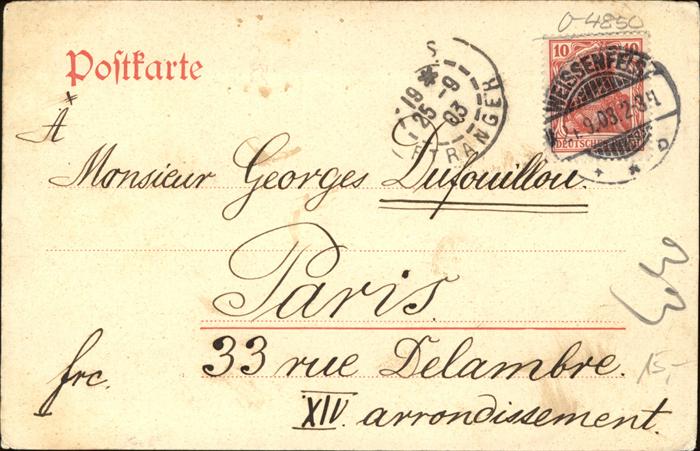 0-4850
Postkarte
10 10
WEISSENFELS
9.03.2-3
DEUTSCHES
ETRANGER
19
25 -9
03
A
Monsieur Georges Dufouillou.
Paris.
33 rue Delambre.
frc.
XIV. arrondissement.
15,-